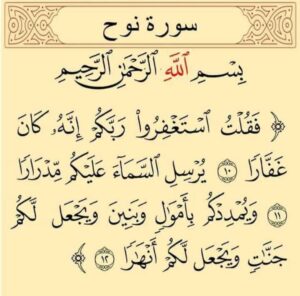 سورة نوح
بِسْمِ ٱللَّهِ ٱلرَّحْمَٰنِ ٱلرَّحِيمِ
﴿ فَقُلْتُ ٱسْتَغْفِرُوا۟ رَبَّكُمْ إِنَّهُۥ كَانَ
غَفَّارًا ١٠ يُرْسِلِ ٱلسَّمَآءَ عَلَيْكُم مِّدْرَارًا
١١ وَيُمْدِدْكُم بِأَمْوَٰلٍ وَبَنِينَ وَيَجْعَل لَّكُمْ
جَنَّٰتٍ وَيَجْعَل لَّكُمْ أَنْهَٰرًا ١٢ ﴾